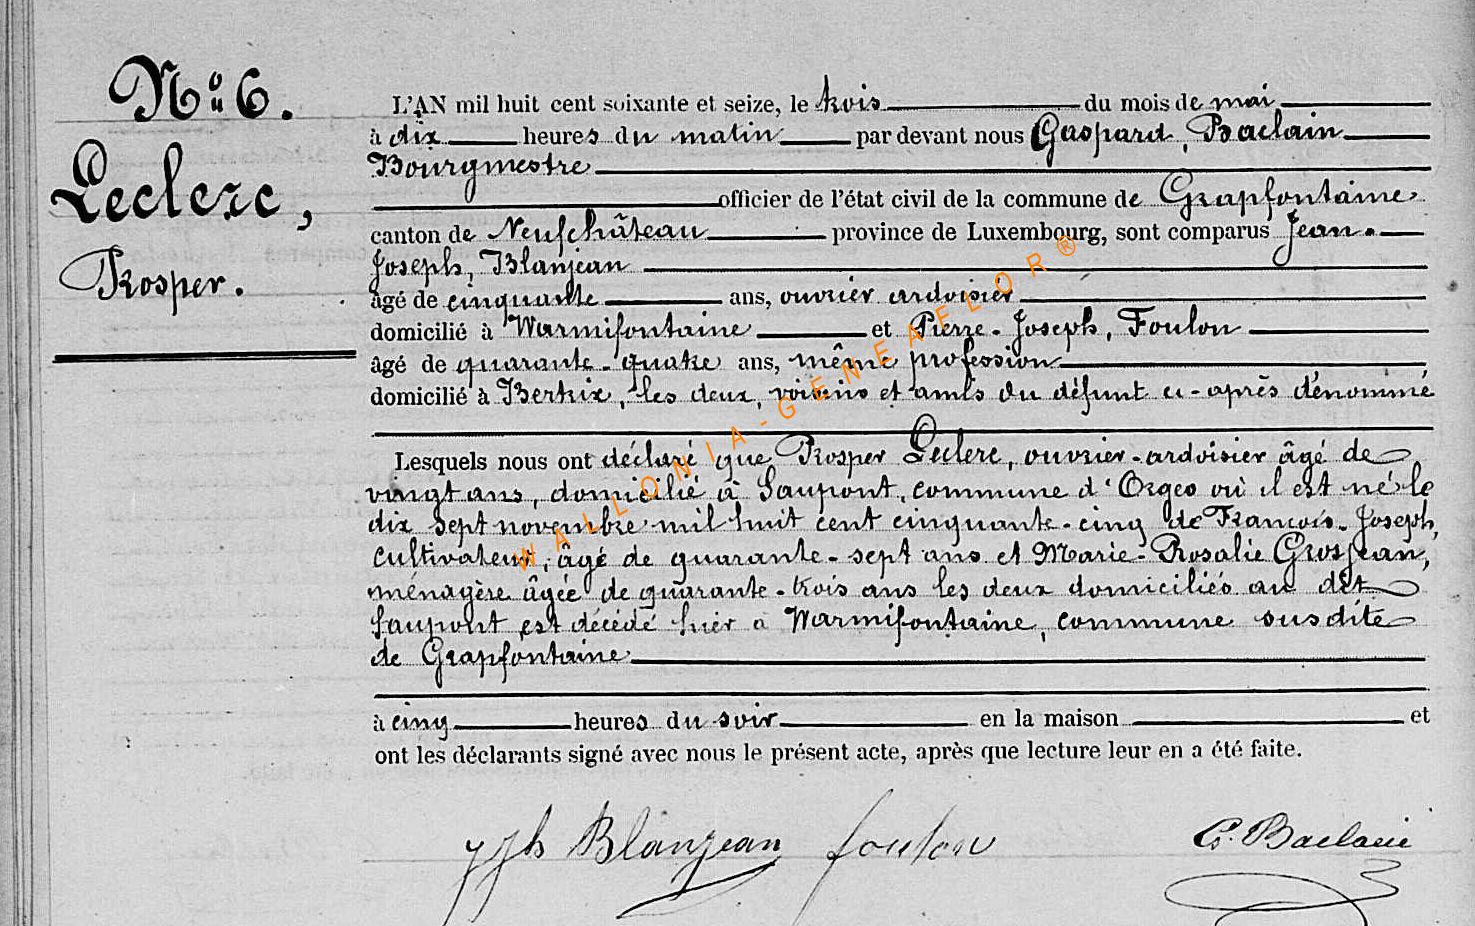 Nº 6.
Leclerc,
Prosper.
L'AN mil huit cent soixante et seize, le trois du mois de mai
à dix heures du matin par devant nous Gaspard, Baclain
Bourgmestre
officier de l'état civil de la commune de Grapfontaine
canton de Neufchâteau province de Luxembourg, sont comparus Jean-
Joseph, Blanjean
âgé de cinquante ans, ouvrier ardoisier
domicilié à Warmifontaine et Pierre-Joseph, Foulon
âgé de quarante-quatre ans, même profession
domicilié à Bertrix, les deux, voisins et amis du défunt ci-après dénommé
Lesquels nous ont déclaré que Prosper Leclerc, ouvrier-ardoisier âgé de
vingt ans, domicilié à Saupont, commune d'Orgeo où il est né le
dix sept novembre mil huit cent cinquante-cinq de François-Joseph,
cultivateur, âgé de quarante-sept ans et Marie-Rosalie Grosjean,
ménagère âgée de quarante-trois ans les deux domiciliés au dit
Saupont est décédé hier à Warmifontaine, commune susdite
de Grapfontaine
à cinq heures du soir en la maison et
ont les déclarants signé avec nous le présent acte, après que lecture leur en a été faite.
Blanjean foulon G. Baclain
WALLONIA-GENEAFLOR®